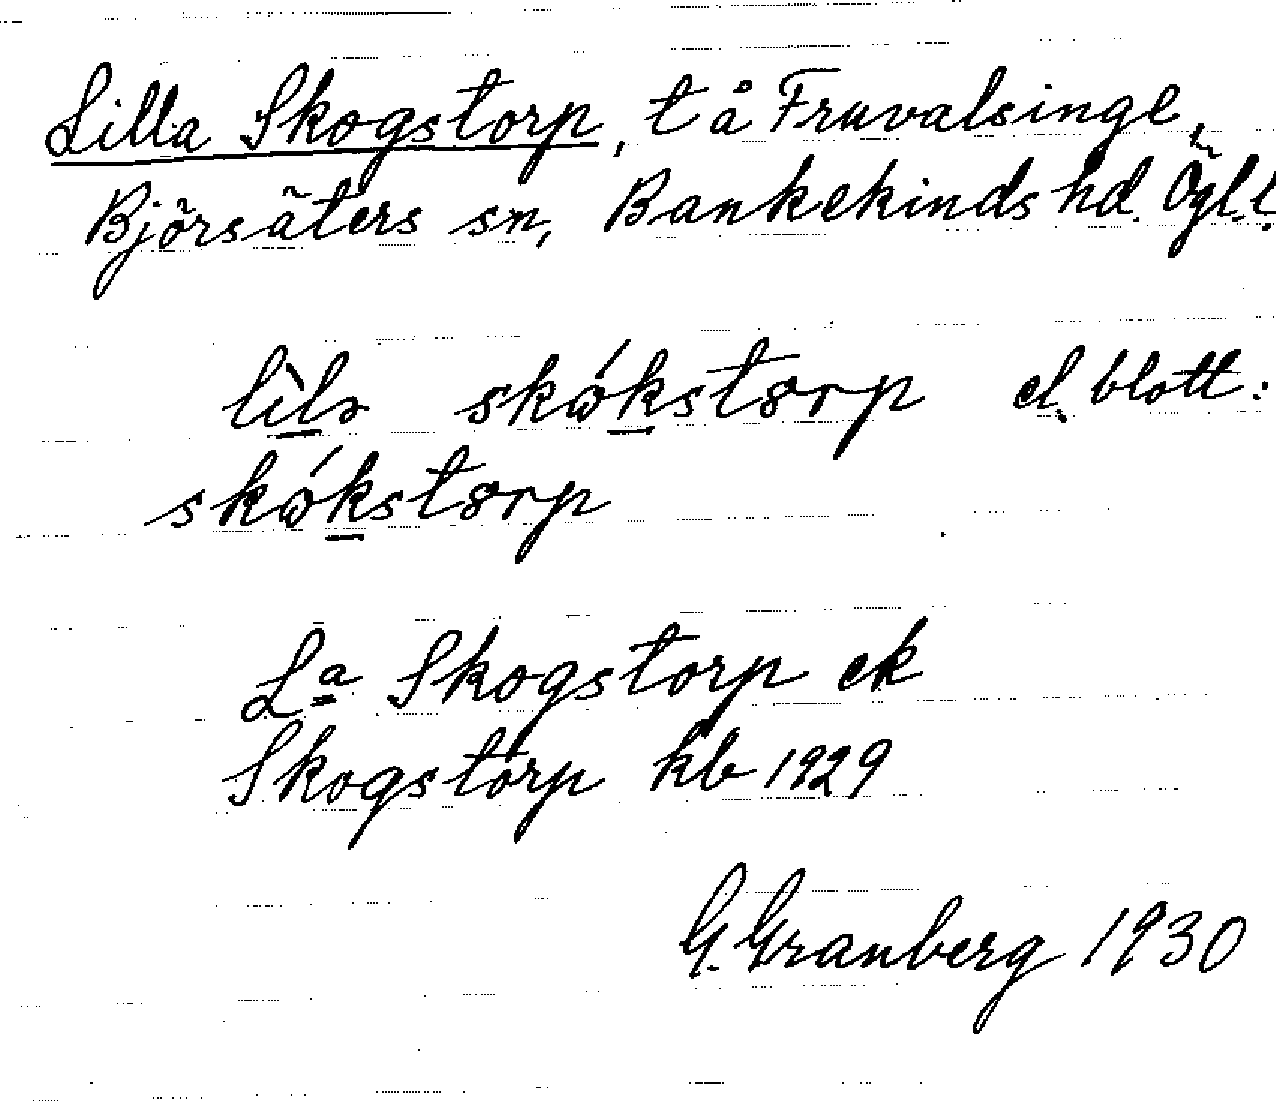 Lilla Skogstorp, t å Fruvalsinge,
Björsäters sn, Bankekinds hd. Ögl.
lìlɜ skɷ́kstɵrp el. blott:
skɷ́kstɵrp
Lª Skogstorp ek
Skogstorp kb 1929
G. Granberg 1930